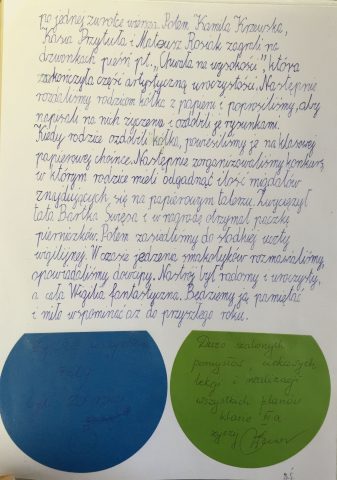 po jednej zwrotce wiersza. Potem Kamila Krzewska,
Kasia Przytuła i Mateusz Rosiak zagrali na
dzwonkach pieśń pt. „Chwała na wysokości", która
zakończyła część artystyczną uroczystości. Następnie
rozdaliśmy rodzicom kółka z papieru i poprosiliśmy, aby
napisali na nich życzenia i ozdobili je rysunkami.
Kiedy rodzice ozdobili kółka, powiesiliśmy je na klasowej
papierowej choince. Następnie zorganizowaliśmy konkurs,
w którym rodzice mieli odgadnąć ilość migdałów
znajdujących się na papierowym talerzu. Zwyciężył
tata Bartka i w nagrodę otrzymał paczkę
pierniczków. Potem zasiedliśmy do słodkiej uczty
wigilijnej. W czasie jedzenia smakołyków rozmawialiśmy,
opowiadaliśmy dowcipy. Nastrój był radosny i uroczysty,
a cała Wigilia fantastyczna. Będziemy ją pamiętać
i miło wspominać aż do przyszłego roku.
Dużo szalonych
pomysłów, ciekawych
lekcji i realizacji
wszystkich planów
klasie a
życzy